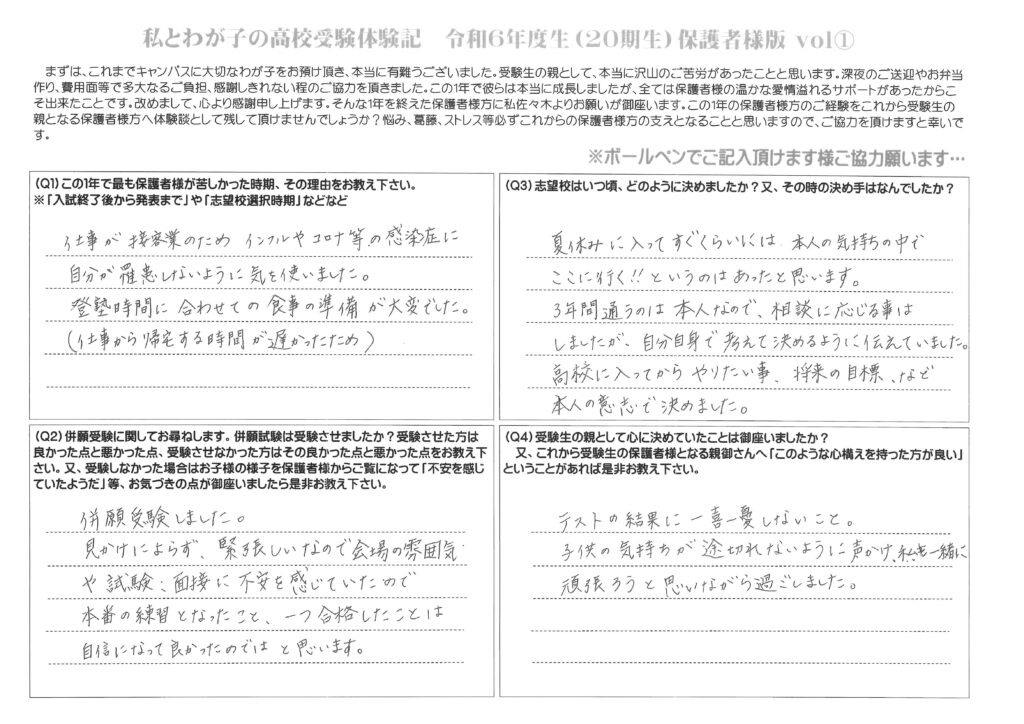 私とわが子の高校受験体験記　令和6年度生（20期生）保護者様版 vol①
まずは、これまでキャンパスに大切なわが子をお預け頂き、本当に有難うございました。受験生の親として、本当に沢山のご苦労があったことと思います。深夜のご送迎やお弁当
作り、費用面等で多大なるご負担、感謝しきれない程のご協力を頂きました。この1年で彼らは本当に成長しましたが、全ては保護者様の温かな愛情溢れるサポートがあったからこ
そ出来たことです。改めまして、心より感謝申し上げます。そんな1年を終えた保護者様方に私佐々木よりお願いが御座います。この1年の保護者様方のご経験をこれから受験生の
親となる保護者様方へ体験談として残して頂けませんでしょうか？悩み、葛藤、ストレス等必ずこれからの保護者様方の支えとなることと思いますので、ご協力を頂けますと幸いで
す。
※ボールペンでご記入頂けます様ご協力願います…
（Q1）この1年で最も保護者様が苦しかった時期、その理由をお教え下さい。
※「入試終了後から発表まで」や「志望校選択時期」などなど
仕事が接客業のため インフルやコロナ等の感染症に
自分が罹患しないように気を使いました。
登塾時間に合わせての食事の準備が大変でした。
（仕事から帰宅する時間が遅かったため）
（Q2）併願受験に関してお尋ねします。併願試験は受験させましたか？受験させた方は
良かった点と悪かった点、受験させなかった方はその良かった点と悪かった点をお教え下
さい。又、受験しなかった場合はお子様の様子を保護者様からご覧になって「不安を感じ
ていたようだ」等、お気づきの点が御座いましたら是非お教え下さい。
併願受験しました。
見かけによらず、緊張しいなので会場の雰囲気
や試験、面接に不安を感じていたので
本番の練習となったこと、一つ合格したことは
自信になって良かったのではと思います。
（Q3）志望校はいつ頃、どのように決めましたか？又、その時の決め手はなんでしたか？
夏休みに入ってすぐくらいには 本人の気持ちの中で
ここに行く!!というのはあったと思います。
3年間通うのは本人なので、相談に応じる事は
しましたが、自分自身で考えて決めるように伝えていました。
高校に入ってからやりたい事、将来の目標、など
本人の意志で決めました。
（Q4）受験生の親として心に決めていたことは御座いましたか？
又、これから受験生の保護者様となる親御さんへ「このような心構えを持った方が良い」
ということがあれば是非お教え下さい。
テストの結果に一喜一憂しないこと。
子供の気持ちが途切れないように声かけ、私も一緒に
頑張ろうと思いながら過ごしました。